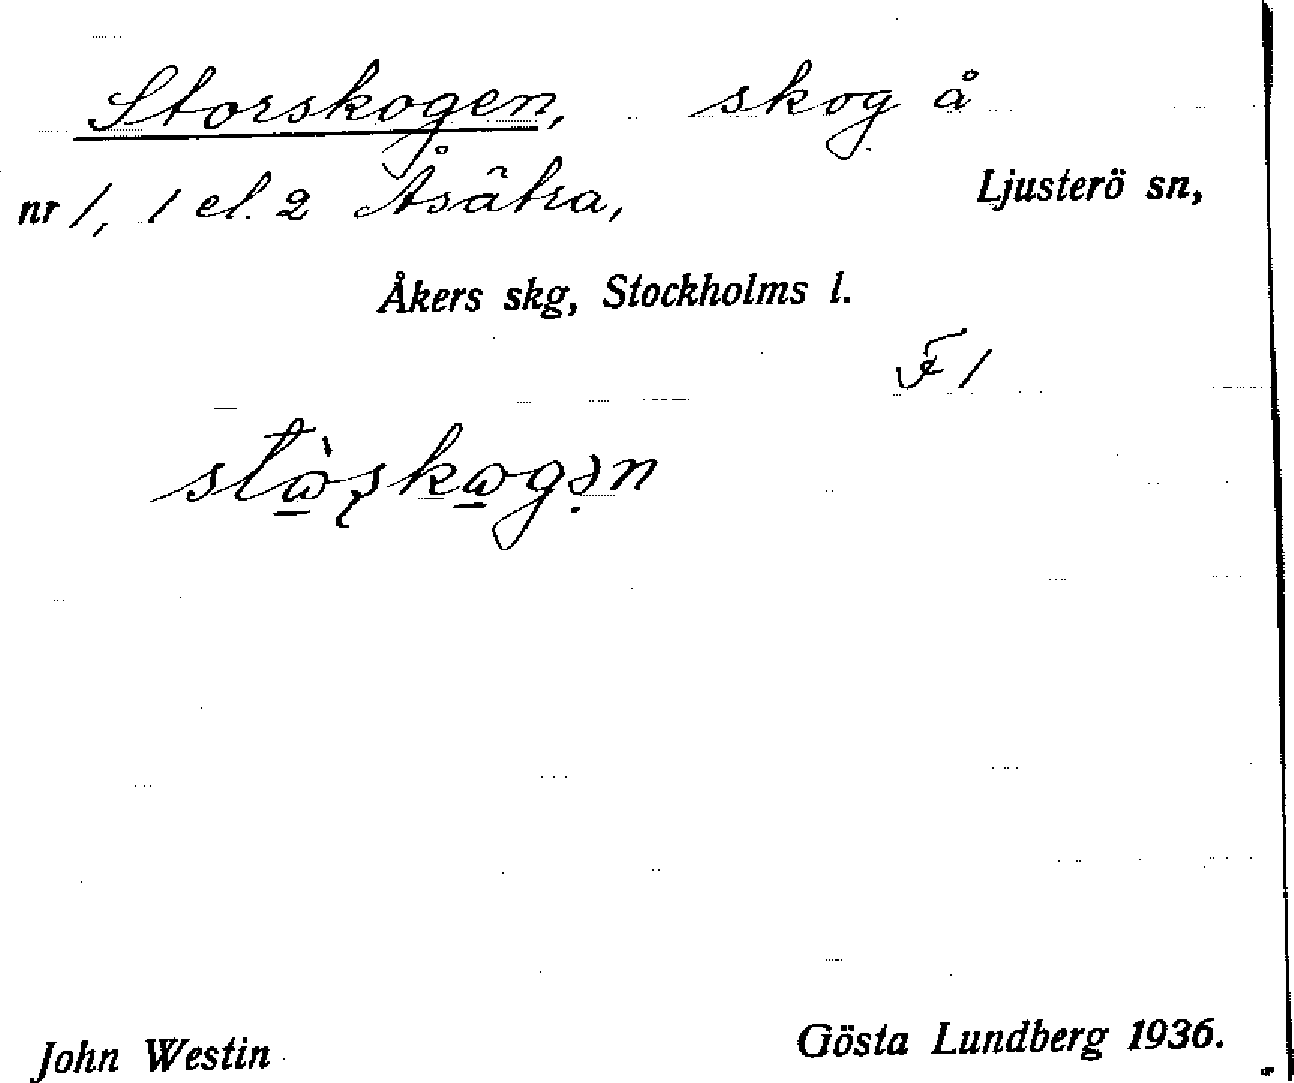 Storskogen, skog å
nr 1, 1 el. 2 Åsätra, Ljusterö sn,
Åkers skg, Stockholms l.
F 1
John Westin Gösta Lundberg 1936.